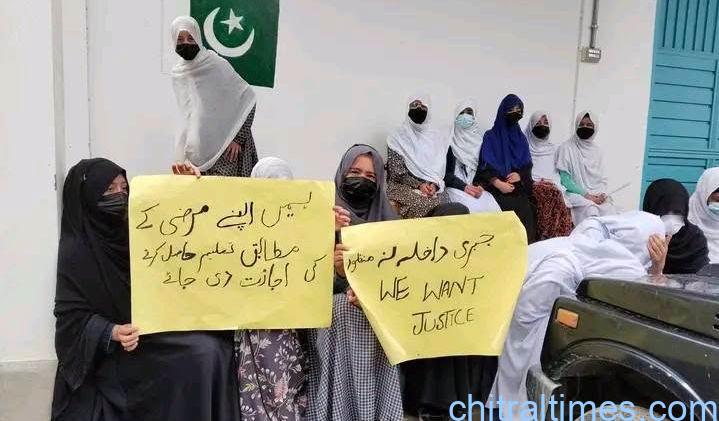 ہمیں اپنے مرضی کے
مطابق تعلیم حاصل کرنے
کی اجازت دی جائے
جبری داخلہ نہ منظور
WE WANT
JUSTICE
chitraltimes.com